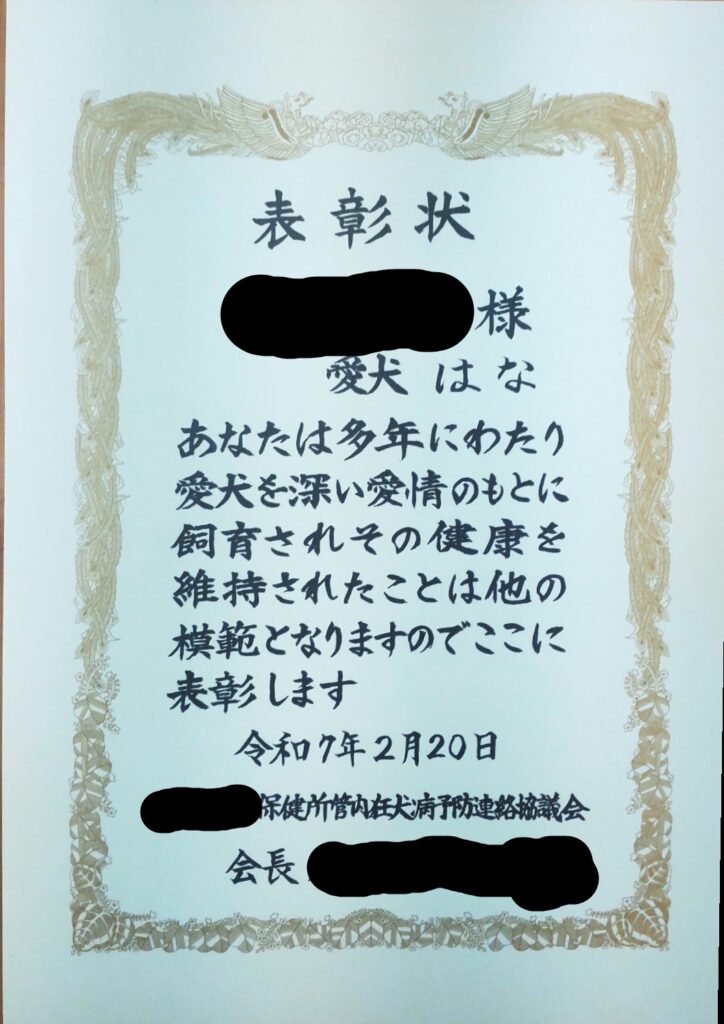 表彰状
様
愛犬 はな
あなたは多年にわたり
愛犬を深い愛情のもとに
飼育されその健康を
維持されたことは他の
模範となりますのでここに
表彰します
令和7年2月20日
保健所管内狂犬病予防連絡協議会
会長